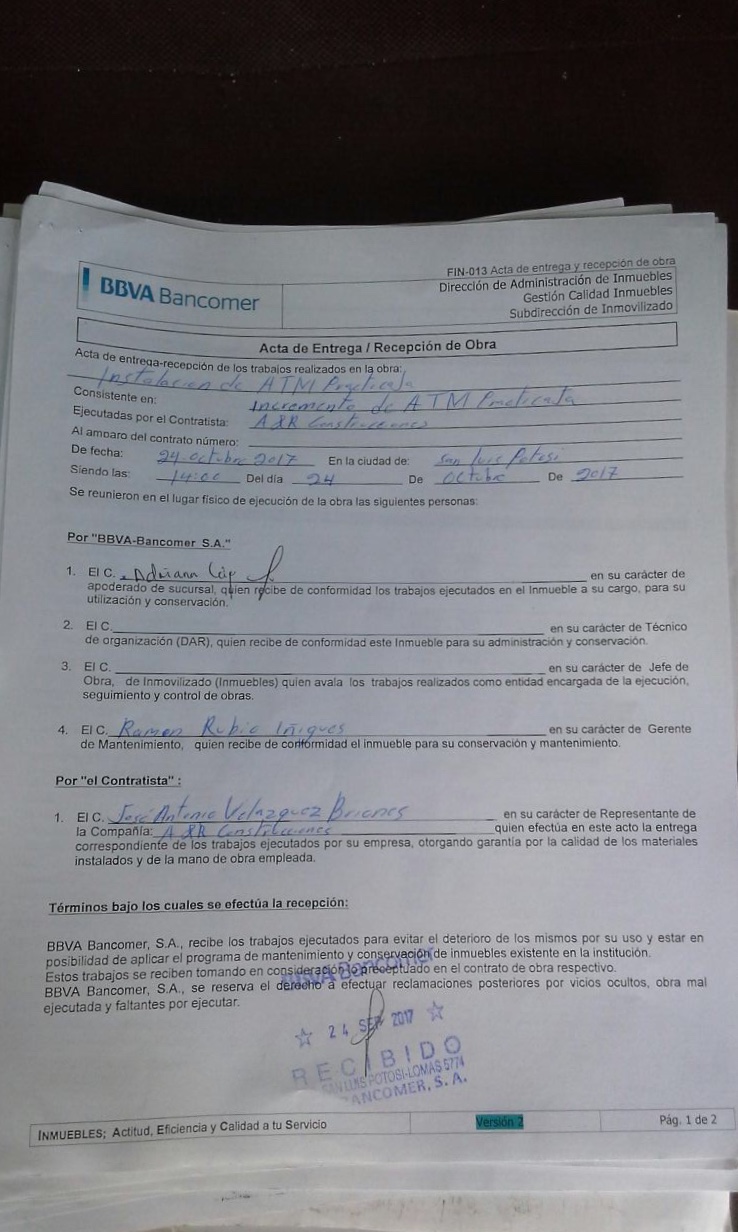 FIN-013 Acta de entrega y recepción de obra
BBVA Bancomer
Dirección de Administración de Inmuebles
Gestión Calidad Inmuebles
Subdirección de Inmovilizado
Acta de Entrega / Recepción de Obra
Acta de entrega-recepción de los trabajos realizados en la obra:
Instalacion de ATM Practicaja
Consistente en: Incremento de ATM Practicaja
Ejecutadas por el Contratista: A&R Construcciones
Al amparo del contrato número:
De fecha: 24-octubre 2017 En la ciudad de: San Luis Potosi
Siendo las: 14:00 Del día 24 De Octubre De 2017
Se reunieron en el lugar físico de ejecución de la obra las siguientes personas:
Por "BBVA-Bancomer S.A."
1. El C. Adriana en su carácter de
apoderado de sucursal, quien recibe de conformidad los trabajos ejecutados en el Inmueble a su cargo, para su
utilización y conservación.
2. El C. en su carácter de Técnico
de organización (DAR), quien recibe de conformidad este Inmueble para su administración y conservación.
3. El C. en su carácter de Jefe de
Obra, de Inmovilizado (Inmuebles) quien avala los trabajos realizados como entidad encargada de la ejecución,
seguimiento y control de obras.
4. El C. Ramon Rubio Iñigues en su carácter de Gerente
de Mantenimiento, quien recibe de conformidad el inmueble para su conservación y mantenimiento.
Por "el Contratista" :
1. El C. José Antonio Velazquez Briones en su carácter de Representante de
la Compañía: A&R Construcciones quien efectúa en este acto la entrega
correspondiente de los trabajos ejecutados por su empresa, otorgando garantía por la calidad de los materiales
instalados y de la mano de obra empleada.
Términos bajo los cuales se efectúa la recepción:
BBVA Bancomer, S.A., recibe los trabajos ejecutados para evitar el deterioro de los mismos por su uso y estar en
posibilidad de aplicar el programa de mantenimiento y conservación de inmuebles existente en la institución.
Estos trabajos se reciben tomando en consideración lo preceptuado en el contrato de obra respectivo.
BBVA Bancomer, S.A., se reserva el derecho a efectuar reclamaciones posteriores por vicios ocultos, obra mal
ejecutada y faltantes por ejecutar.
BBVA Bancomer
24 SEP 2017
RECIBIDO
SAN LUIS POTOSI-LOMAS 5774
BANCOMER, S. A.
INMUEBLES; Actitud, Eficiencia y Calidad a tu Servicio Versión 2 Pág. 1 de 2